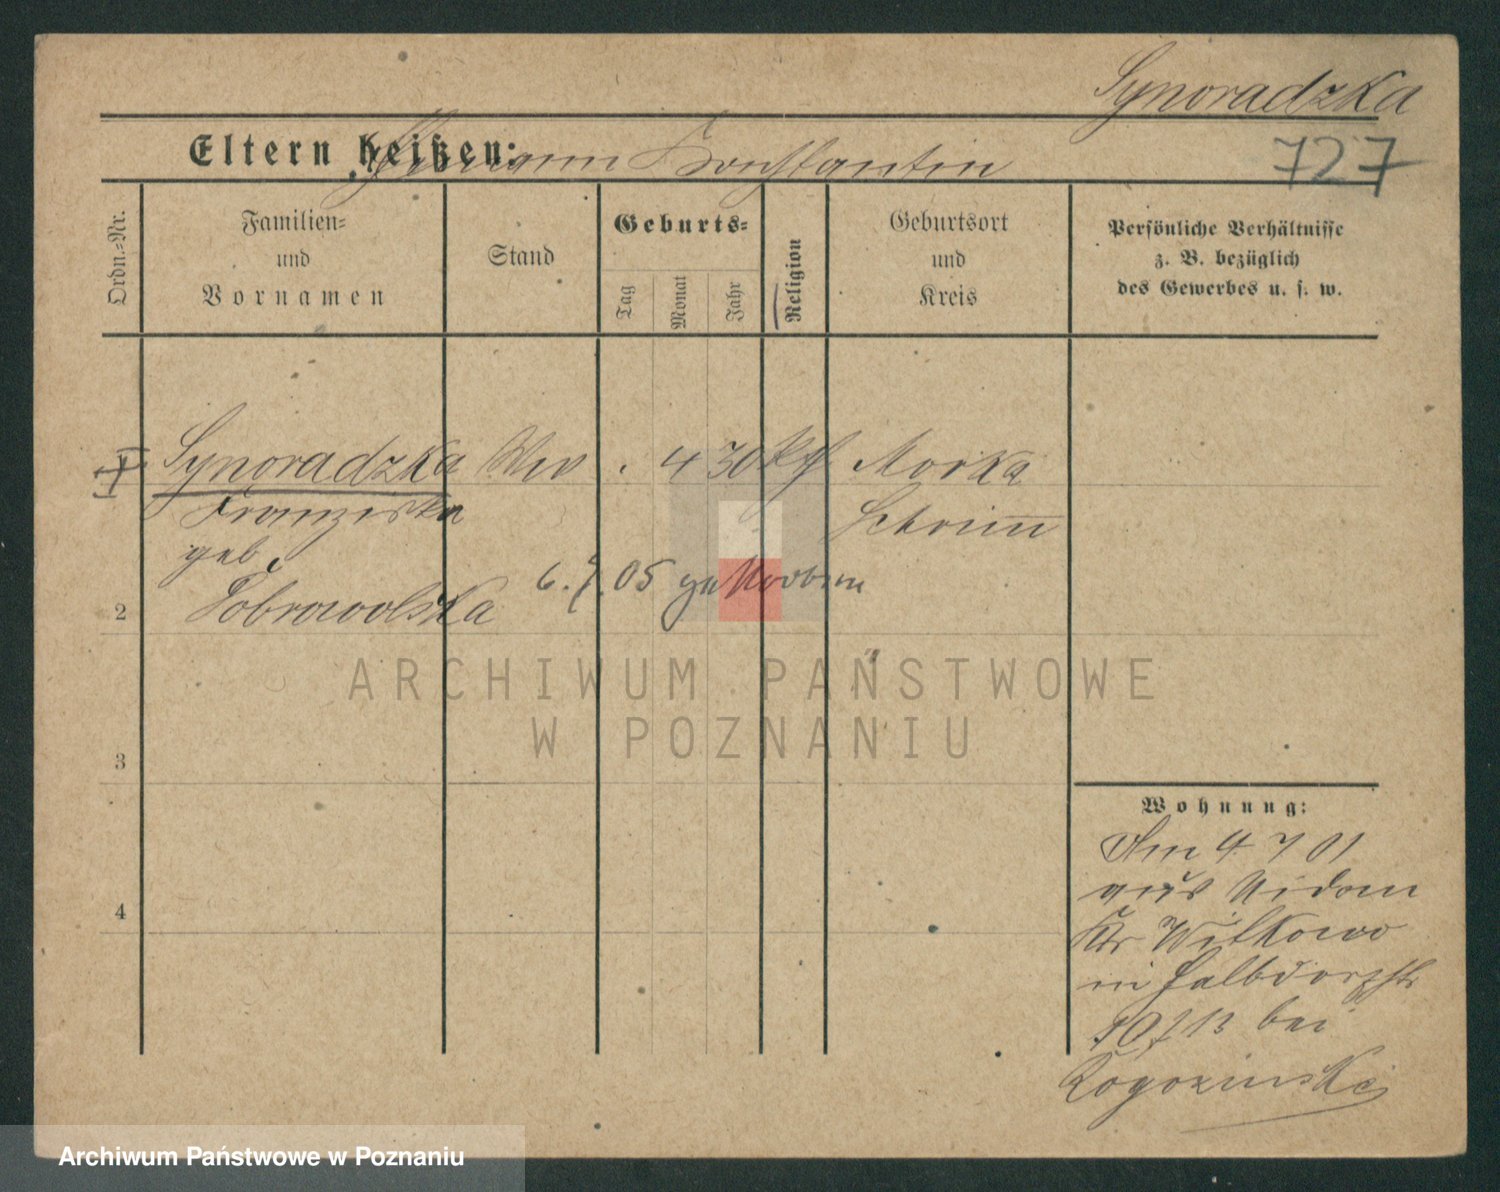 Synoradzka
Eltern heißen: Hermann Konstantin
727
Ordn.=Nr.
Familien=
und
Vornamen
Stand
Geburts=
Tag
Monat
Jahr
Religion
Geburtsort
und
Kreis
Persönliche Verhältnisse
z. B. bezüglich
des Gewerbes u. s. w.
Synoradzka Ww . 4 30 kth Morka
Franziska Schrim̄
geb.
Dobrowolska
6. 9. 05 gestorben
2
3
4
ARCHIWUM PAŃSTWOWE
W POZNANIU
Wohnung:
Am 4 7 01
aus
Kr Witkowo
in Halbdorfstr
bei
Rogozinski
Archiwum Państwowe w Poznaniu